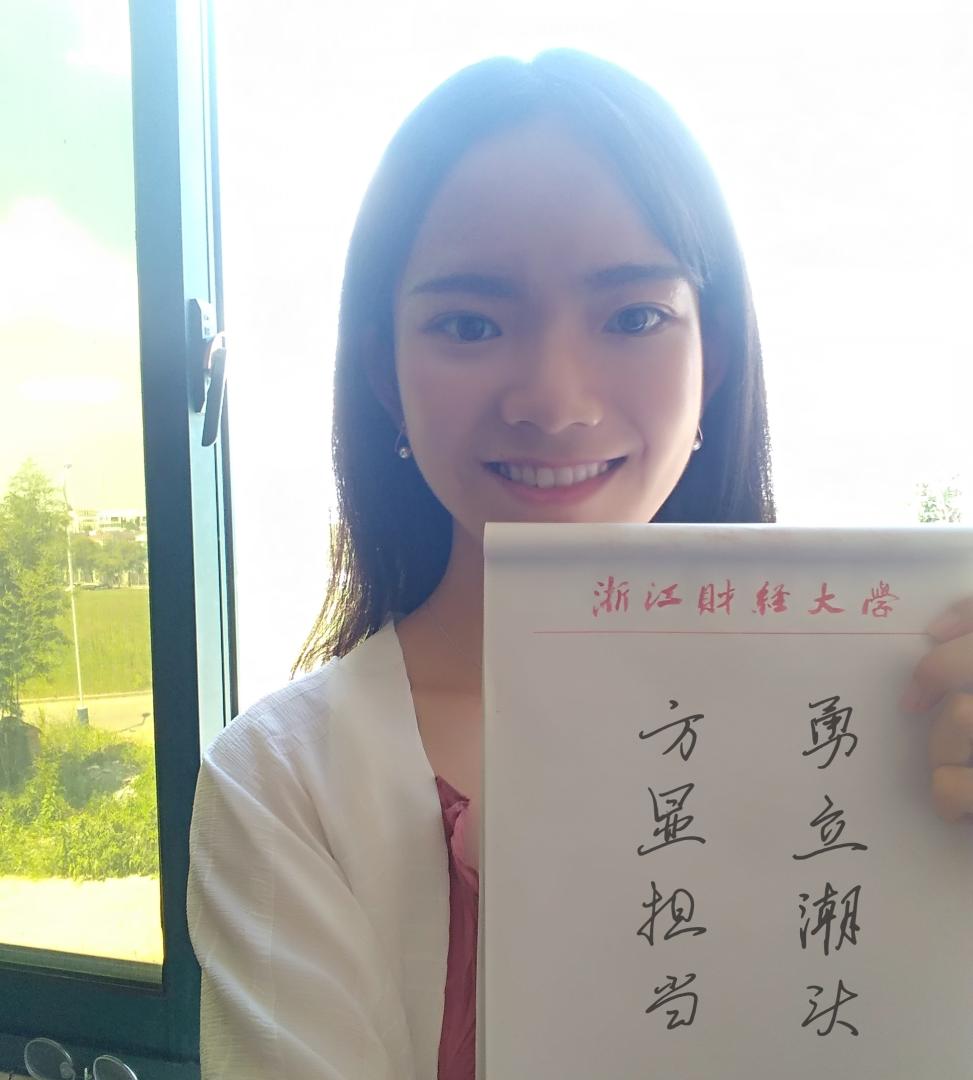 浙江财经大学
勇立潮头
方显担当